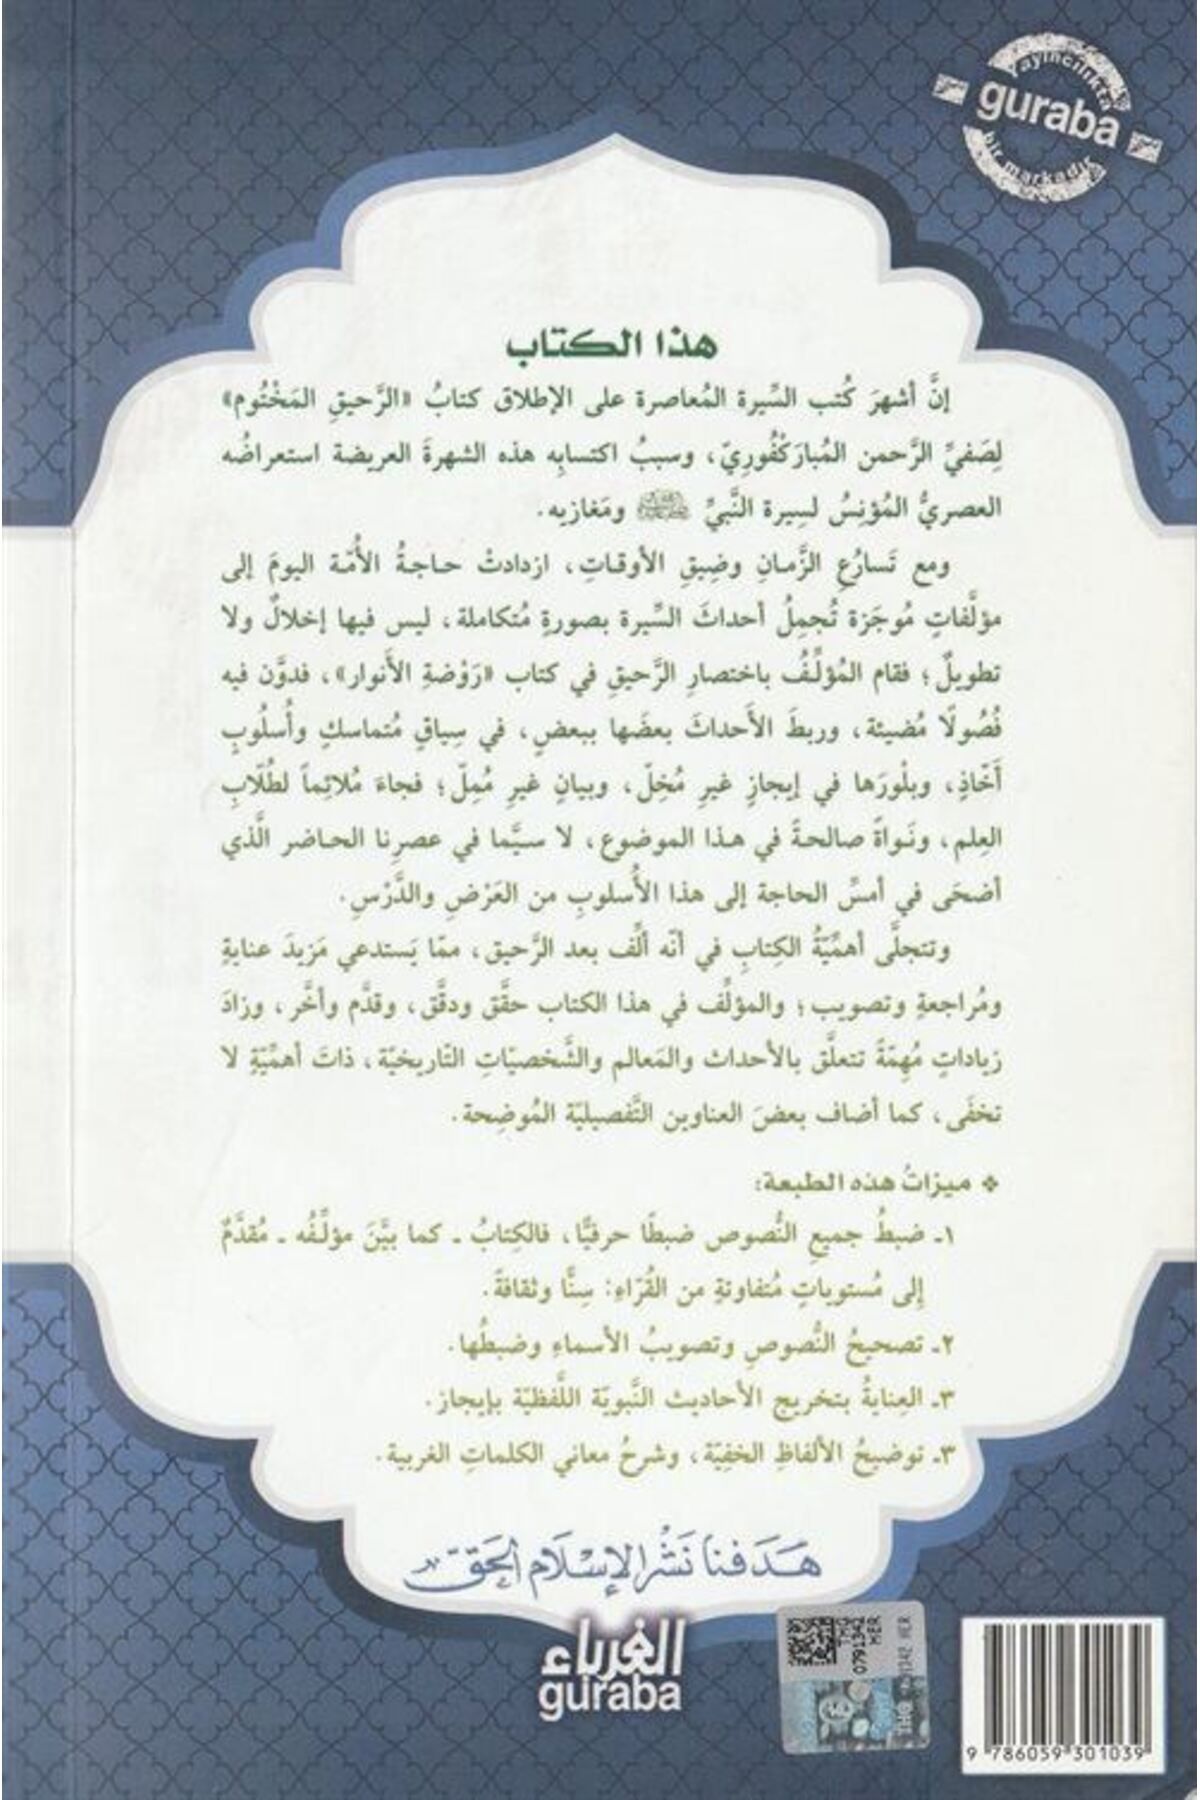 Yayıncılıkta
guraba
bir markadır
هذا الكتاب
إنَّ أشهرَ كُتب السِّيرة المُعاصرة على الإطلاق كتابُ «الرَّحيقِ المَخْتُوم»
لِصَفيِّ الرَّحمن المُبارَكْفُورِيّ، وسببُ اكتسابِه هذه الشهرةَ العريضة استعراضُه
العصريُّ المُؤنِسُ لسِيرة النَّبيِّ ﷺ ومَغازيه.
ومع تَسارُعِ الزَّمانِ وضِيقِ الأوقاتِ، ازدادتْ حاجةُ الأُمّة اليومَ إلى
مؤلَّفاتٍ مُوجَزة تُجمِلُ أحداثَ السِّيرة بصورةٍ مُتكاملة، ليس فيها إخلالٌ ولا
تطويلٌ؛ فقام المُؤلِّفُ باختصارِ الرَّحيقِ في كتاب «رَوْضةِ الأَنوار»، فدوَّن فيه
فُصُولًا مُضيئة، وربطَ الأَحداثَ بعضَها ببعضٍ، في سِياقٍ مُتماسكٍ وأُسلُوبٍ
أَخّاذٍ، وبلْورَها في إيجازٍ غيرِ مُخِلّ، وبيانٍ غيرِ مُمِلّ؛ فجاءَ مُلائِماً لطُلّابِ
العِلم، ونَواةً صالحةً في هذا الموضوع، لا سيَّما في عصرِنا الحاضر الَّذي
أضحَى في أمسِّ الحاجة إلى هذا الأُسلوبِ من العَرْضِ والدَّرْسِ.
وتتجلَّى أهمِّيّةُ الكِتابِ في أنّه ألِّف بعد الرَّحيق، ممّا يَستدعي مَزيدَ عنايةٍ
ومُراجعةٍ وتصويب؛ والمؤلِّف في هذا الكتاب حقَّق ودقَّق، وقدَّم وأخَّر، وزادَ
زياداتٍ مُهِمّةً تتعلَّق بالأحداث والمَعالم والشَّخصيّاتِ التّاريخيّة، ذاتَ أهمِّيّةٍ لا
تخفَى، كما أضاف بعضَ العناوين التَّفصيليّة المُوضِحة.
❖ ميزاتُ هذه الطبعة:
١ـ ضبطُ جميعِ النُّصوص ضبطًا حرفيًّا، فالكِتابُ ـ كما بيَّنَ مؤلِّفُه ـ مُقدَّمٌ
إلى مُستوياتٍ مُتفاوتةٍ من القُرّاءِ: سِنًّا وثقافةً.
٢ـ تصحيحُ النُّصوصِ وتصويبُ الأسماءِ وضبطُها.
٣ـ العِنايةُ بتخريجِ الأحاديث النَّبويّة اللَّفظيّة بإيجاز.
٣ـ توضيحُ الألفاظِ الخفِيّة، وشرحُ معاني الكلماتِ الغريبة.
هَدَفنا نَشْرُ الإِسْلَامِ الحَقّ
الغرباء
guraba
TMQ
0791342
MER
9 786059 301039